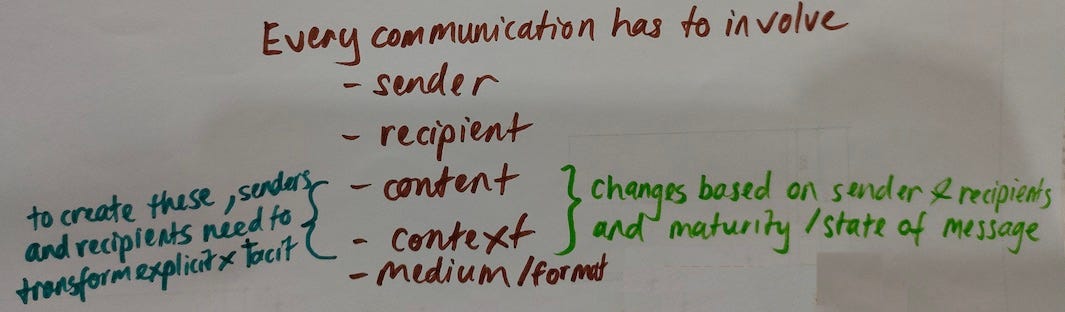 Every communication has to involve
- sender
- recipient
- content
- context
- medium/format
to create these, senders
and recipients need to
transform explicit x tacit
changes based on sender & recipients
and maturity/state of message